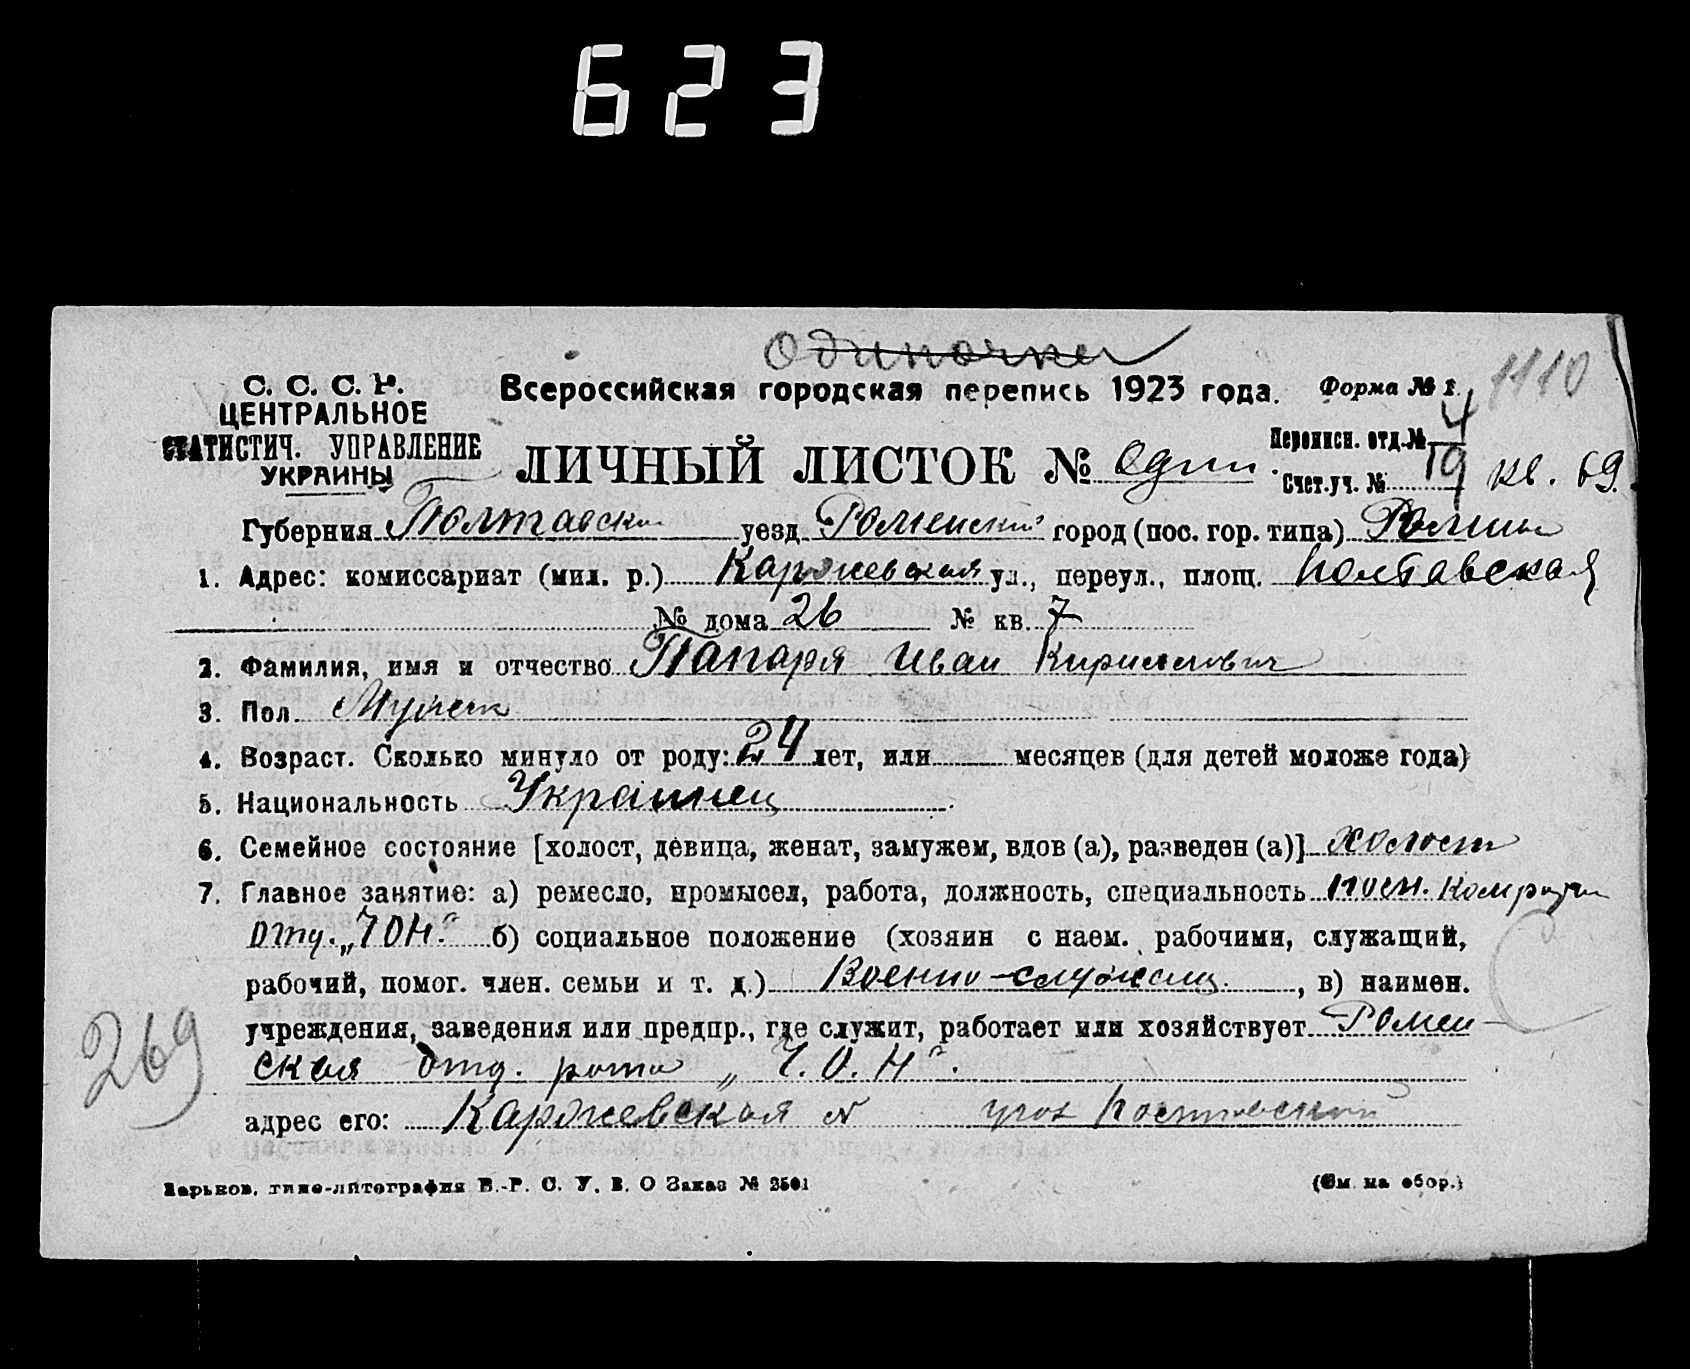 623
Одиночки
С. С. С. Р.
ЦЕНТРАЛЬНОЕ
СТАТИСТИЧ. УПРАВЛЕНИЕ
УКРАИНЫ
Всероссийская городская перепись 1923 года.
Форма № 1.
1110
ЛИЧНЫЙ ЛИСТОК № Один
Переписн. отд. № 4
Счет. уч. № 19 кв. 69
Губерния Полтавская уезд Роменский город (пос. гор. типа) Ромны
1. Адрес: комиссариат (мил. р.) Каржевская ул., переул., площ. Полтавская
№ дома 26 № кв. 7
2. Фамилия, имя и отчество Папаря Иван Кириллович
3. Пол Мужск
4. Возраст. Сколько минуло от роду: 24 лет, или месяцев (для детей моложе года)
5. Национальность Украинец
6. Семейное состояние [холост, девица, женат, замужем, вдов (а), разведен (а)] холост
7. Главное занятие: а) ремесло, промысел, работа, должность, специальность пом. Комроты
отд. „ЧОН" б) социальное положение (хозяин с наем. рабочими, служащий,
рабочий, помог. член. семьи и т. д.) Военно-служащ. , в) наимен.
учреждения, заведения или предпр., где служит, работает или хозяйствует Ромен-
ская отд. рота „Ч.О.Н".
269
адрес его: Каржевская № угол
Харьков, типо-литография В.-Р. С. У. В. О Заказ № 3501
(См. на обор.)